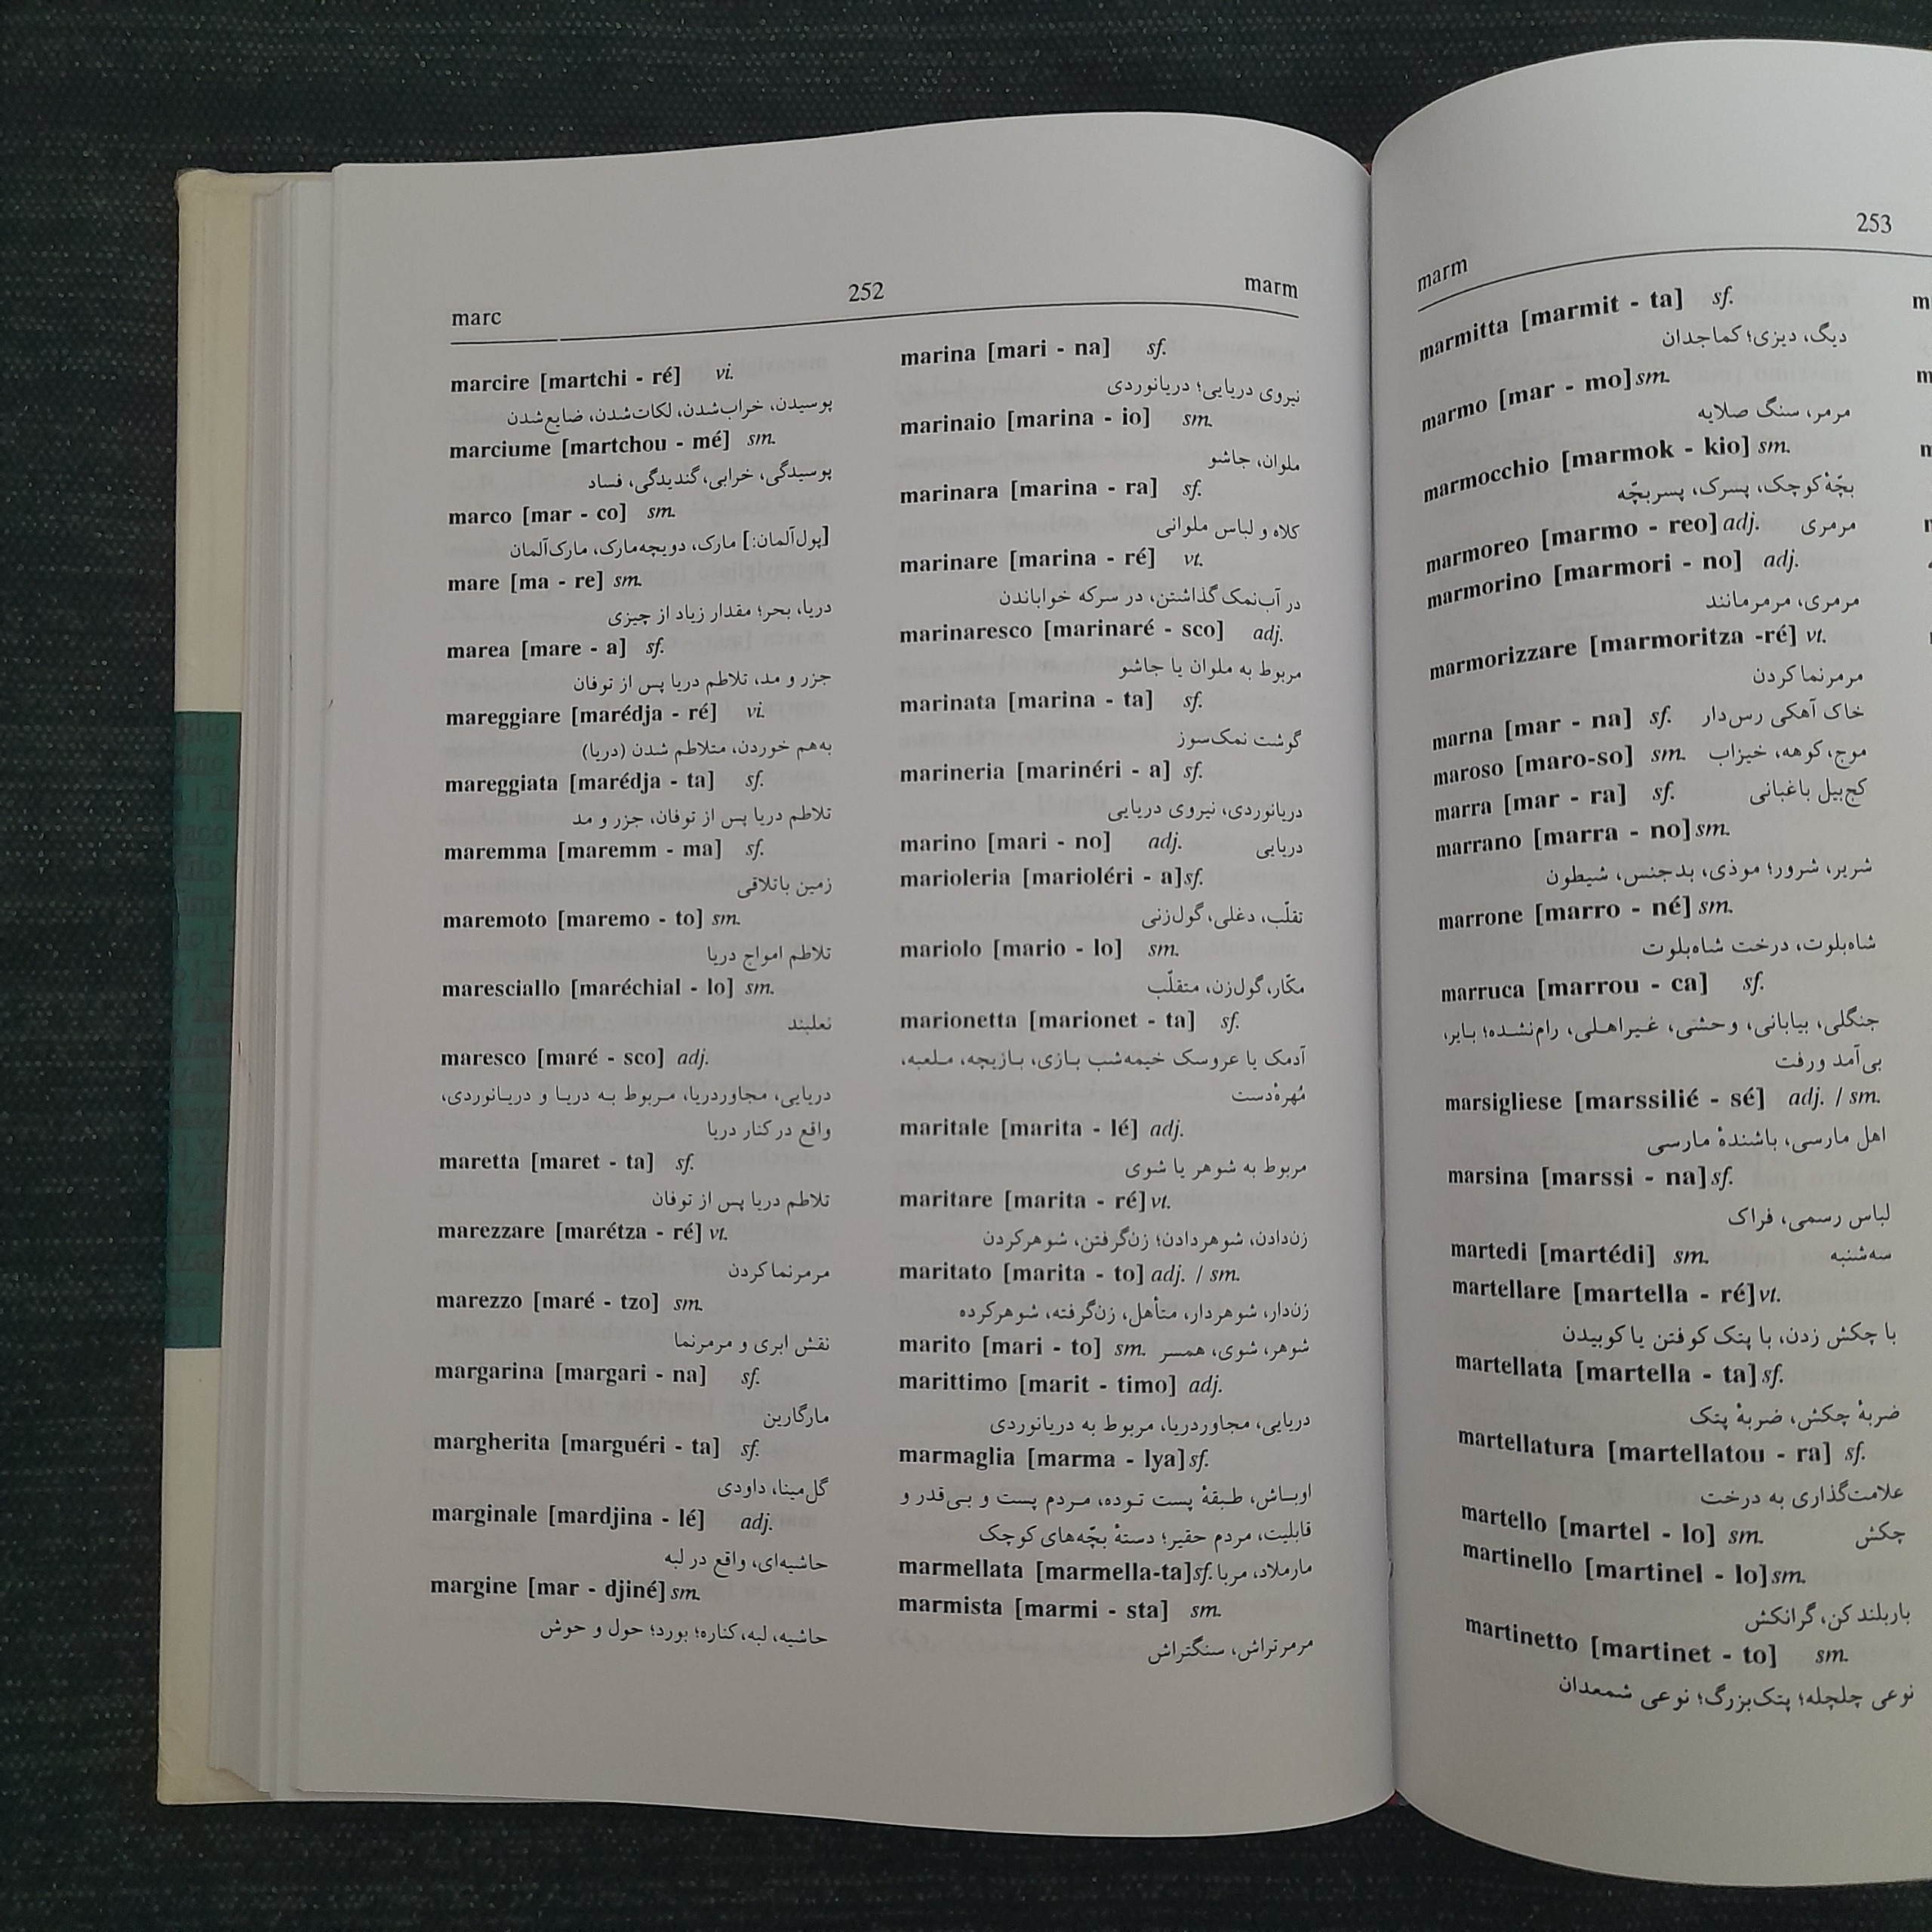 marc
252
marm
marcire [martchi - ré] vi.
پوسیدن، خراب‌شدن، لکات‌شدن، ضایع‌شدن
marciume [martchou - mé] sm.
پوسیدگی، خرابی، گندیدگی، فساد
marco [mar - co] sm.
[پول‌آلمان:] مارک، دویچه‌مارک، مارک‌آلمان
mare [ma - re] sm.
دریا، بحر؛ مقدار زیاد از چیزی
marea [mare - a] sf.
جزر و مد، تلاطم دریا پس از توفان
mareggiare [marédja - ré] vi.
به‌هم خوردن، متلاطم شدن (دریا)
mareggiata [marédja - ta] sf.
تلاطم دریا پس از توفان، جزر و مد
maremma [maremm - ma] sf.
زمین باتلاقی
maremoto [maremo - to] sm.
تلاطم امواج دریا
maresciallo [maréchial - lo] sm.
نعلبند
maresco [maré - sco] adj.
دریایی، مجاوردریا، مربوط به دریا و دریانوردی،
واقع در کنار دریا
maretta [maret - ta] sf.
تلاطم دریا پس از توفان
marezzare [marétza - ré] vt.
مرمرنما کردن
marezzo [maré - tzo] sm.
نقش ابری و مرمرنما
margarina [margari - na] sf.
مارگارین
margherita [marguéri - ta] sf.
گل‌مینا، داودی
marginale [mardjina - lé] adj.
حاشیه‌ای، واقع در لبه
margine [mar - djiné] sm.
حاشیه، لبه، کناره؛ بورد؛ حول و حوش
marina [mari - na] sf.
نیروی دریایی؛ دریانوردی
marinaio [marina - io] sm.
ملوان، جاشو
marinara [marina - ra] sf.
کلاه و لباس ملوانی
marinare [marina - ré] vt.
در آب‌نمک گذاشتن، در سرکه خواباندن
marinaresco [marinaré - sco] adj.
مربوط به ملوان یا جاشو
marinata [marina - ta] sf.
گوشت نمک‌سوز
marineria [marinéri - a] sf.
دریانوردی، نیروی دریایی
marino [mari - no] adj. دریایی
marioleria [marioléri - a] sf.
تقلّب، دغلی، گول‌زنی
mariolo [mario - lo] sm.
مکّار، گول‌زن، متقلّب
marionetta [marionet - ta] sf.
آدمک یا عروسک خیمه‌شب بازی، بازیچه، ملعبه،
مُهرهٔ‌دست
maritale [marita - lé] adj.
مربوط به شوهر یا شوی
maritare [marita - ré] vt.
زن‌دادن، شوهردادن؛ زن‌گرفتن، شوهرکردن
maritato [marita - to] adj. / sm.
زن‌دار، شوهردار، متأهل، زن‌گرفته، شوهرکرده
marito [mari - to] sm. شوهر، شوی، همسر
marittimo [marit - timo] adj.
دریایی، مجاوردریا، مربوط به دریانوردی
marmaglia [marma - lya] sf.
اوباش، طبقهٔ پست توده، مردم پست و بی‌قدر و
قابلیت، مردم حقیر؛ دستهٔ بچّه‌های کوچک
marmellata [marmella-ta] sf. مارملاد، مربا
marmista [marmi - sta] sm.
مرمرتراش، سنگتراش
253
marm
marmitta [marmit - ta] sf.
دیگ، دیزی؛ کماجدان
marmo [mar - mo] sm.
مرمر، سنگ صلایه
marmocchio [marmok - kio] sm.
بچّهٔ کوچک، پسرک، پسربچّه
marmoreo [marmo - reo] adj. مرمری
marmorino [marmori - no] adj.
مرمری، مرمرمانند
marmorizzare [marmoritza -ré] vt.
مرمرنما کردن
marna [mar - na] sf. خاک آهکی رس‌دار
maroso [maro-so] sm. موج، کوهه، خیزاب
marra [mar - ra] sf. کج‌بیل باغبانی
marrano [marra - no] sm.
شریر، شرور؛ موذی، بدجنس، شیطون
marrone [marro - né] sm.
شاه‌بلوت، درخت شاه‌بلوت
marruca [marrou - ca] sf.
جنگلی، بیابانی، وحشی، غیراهلی، رام‌نشده؛ بایر،
بی‌آمد ورفت
marsigliese [marssilié - sé] adj. / sm.
اهل مارسی، باشندهٔ مارسی
marsina [marssi - na] sf.
لباس رسمی، فراک
martedi [martédi] sm. سه‌شنبه
martellare [martella - ré] vt.
با چکش زدن، با پتک کوفتن یا کوبیدن
martellata [martella - ta] sf.
ضربهٔ چکش، ضربهٔ پتک
martellatura [martellatou - ra] sf.
علامت‌گذاری به درخت
martello [martel - lo] sm. چکش
martinello [martinel - lo] sm.
باربلند کن، گرانکش
martinetto [martinet - to] sm.
نوعی چلچله؛ پتک‌بزرگ؛ نوعی شمعدان